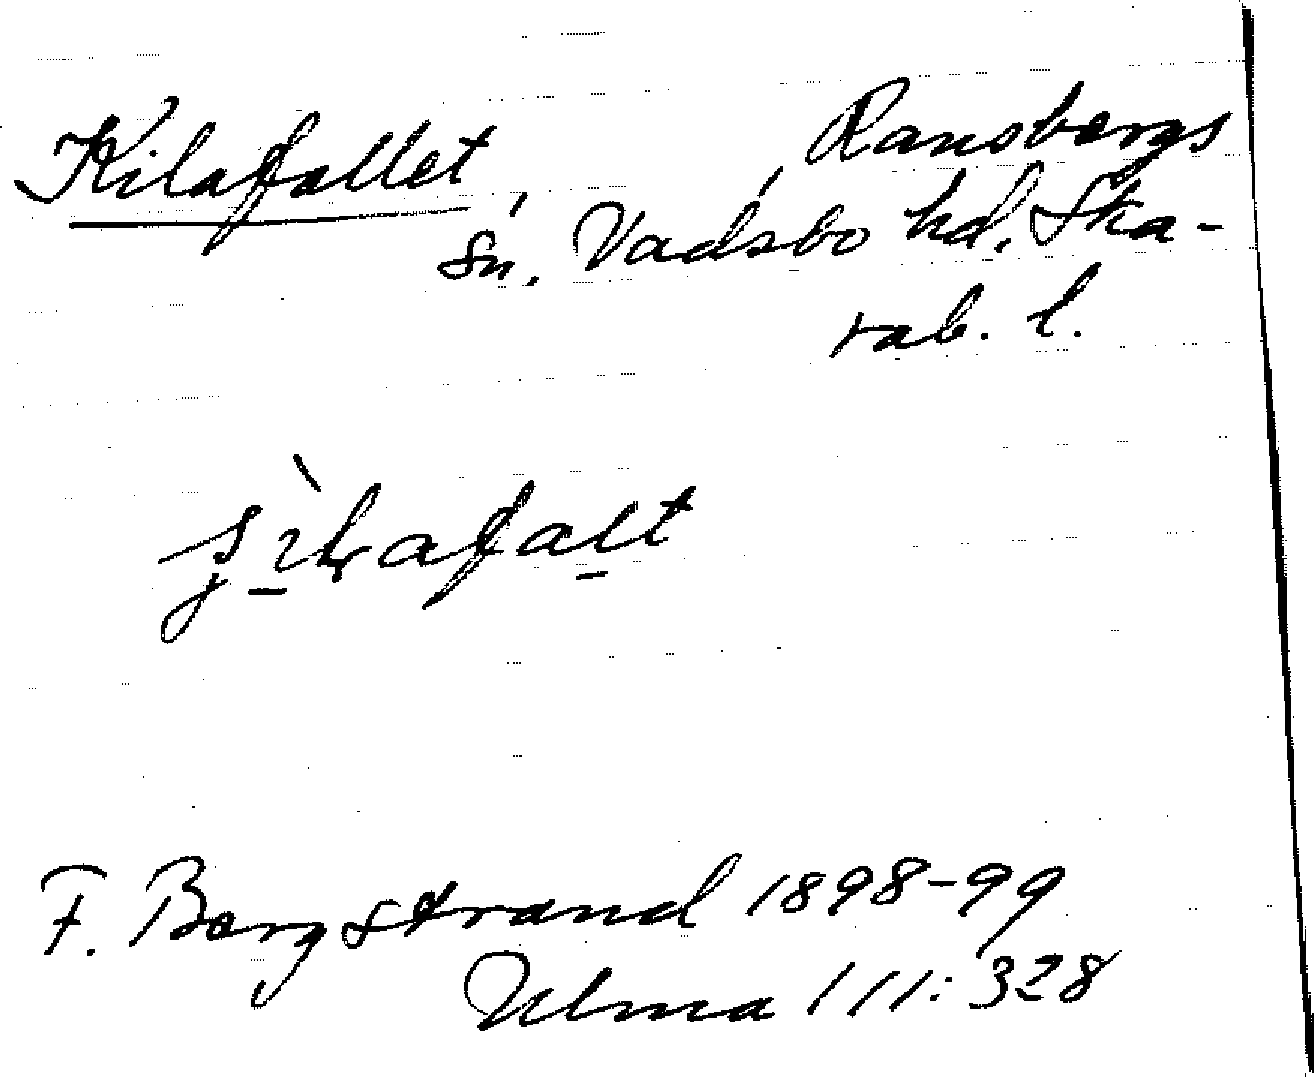 Kilafallet, Ransbergs
sn. Vadsbo hd. Ska-
rab. l.
F. Bergstrand 1898-99
Ulma 111:328